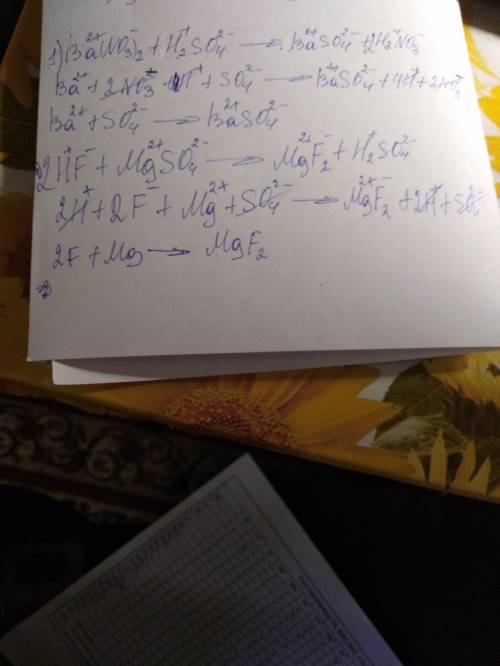 1) Ba²⁺(NO₃⁻)₂ + H₂⁺SO₄²⁻ → Ba²⁺SO₄²⁻ + 2H₂⁺NO₃⁻
Ba²⁺ + 2NO₃⁻ + H⁺ + SO₄²⁻ → Ba²⁺SO₄²⁻ + 4H⁺ + 2NO₃⁻
Ba²⁺ + SO₄²⁻ → Ba²⁺SO₄²⁻
2H⁺F⁻ + Mg²⁺SO₄²⁻ → Mg²⁺F₂⁻ + H₂⁺SO₄²⁻
2H⁺ + 2F⁻ + Mg²⁺ + SO₄²⁻ → Mg²⁺F₂⁻ + 2H⁺ + SO₄²⁻
2F + Mg → MgF₂